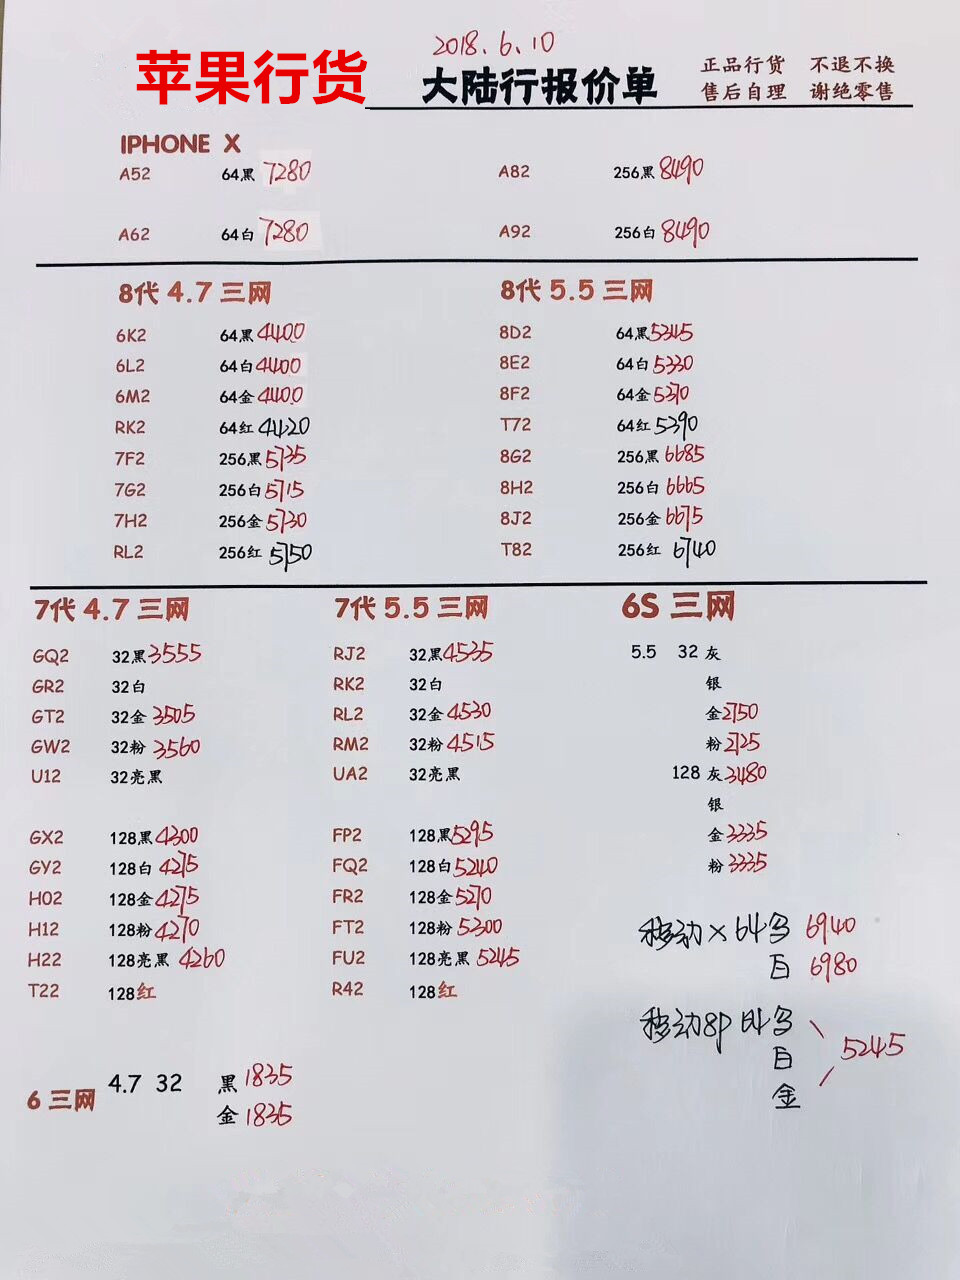 2018.6.10
苹果行货 大陆行报价单 正品行货 不退不换
售后自理 谢绝零售
IPHONE X
A52 64黑 7280 A82 256黑 8490
A62 64白 7280 A92 256白 8490
8代 4.7 三网 8代 5.5 三网
6K2 64黑 4400 8D2 64黑 5345
6L2 64白 4400 8E2 64白 5330
6M2 64金 4400 8F2 64金 5370
RK2 64红 4420 T72 64红 5390
7F2 256黑 5735 8G2 256黑 6685
7G2 256白 5715 8H2 256白 6665
7H2 256金 5730 8J2 256金 6675
RL2 256红 5750 T82 256红 6740
7代 4.7 三网 7代 5.5 三网 6S 三网
GQ2 32黑 3555 RJ2 32黑 4535 5.5 32 灰
GR2 32白 RK2 32白 银
GT2 32金 3505 RL2 32金 4530 金 2750
GW2 32粉 3560 RM2 32粉 4515 粉 2725
U12 32亮黑 UA2 32亮黑 128 灰 3480
银
GX2 128黑 4300 FP2 128黑 5295 金 3335
GY2 128白 4275 FQ2 128白 5240 粉 3335
H02 128金 4275 FR2 128金 5270
H12 128粉 4270 FT2 128粉 5300 移动X 64 6940
H22 128亮黑 4260 FU2 128亮黑 5245 白 6980
T22 128红 R42 128红
移动8P 64
白 5245
金
6 三网 4.7 32 黑 1835
金 1835